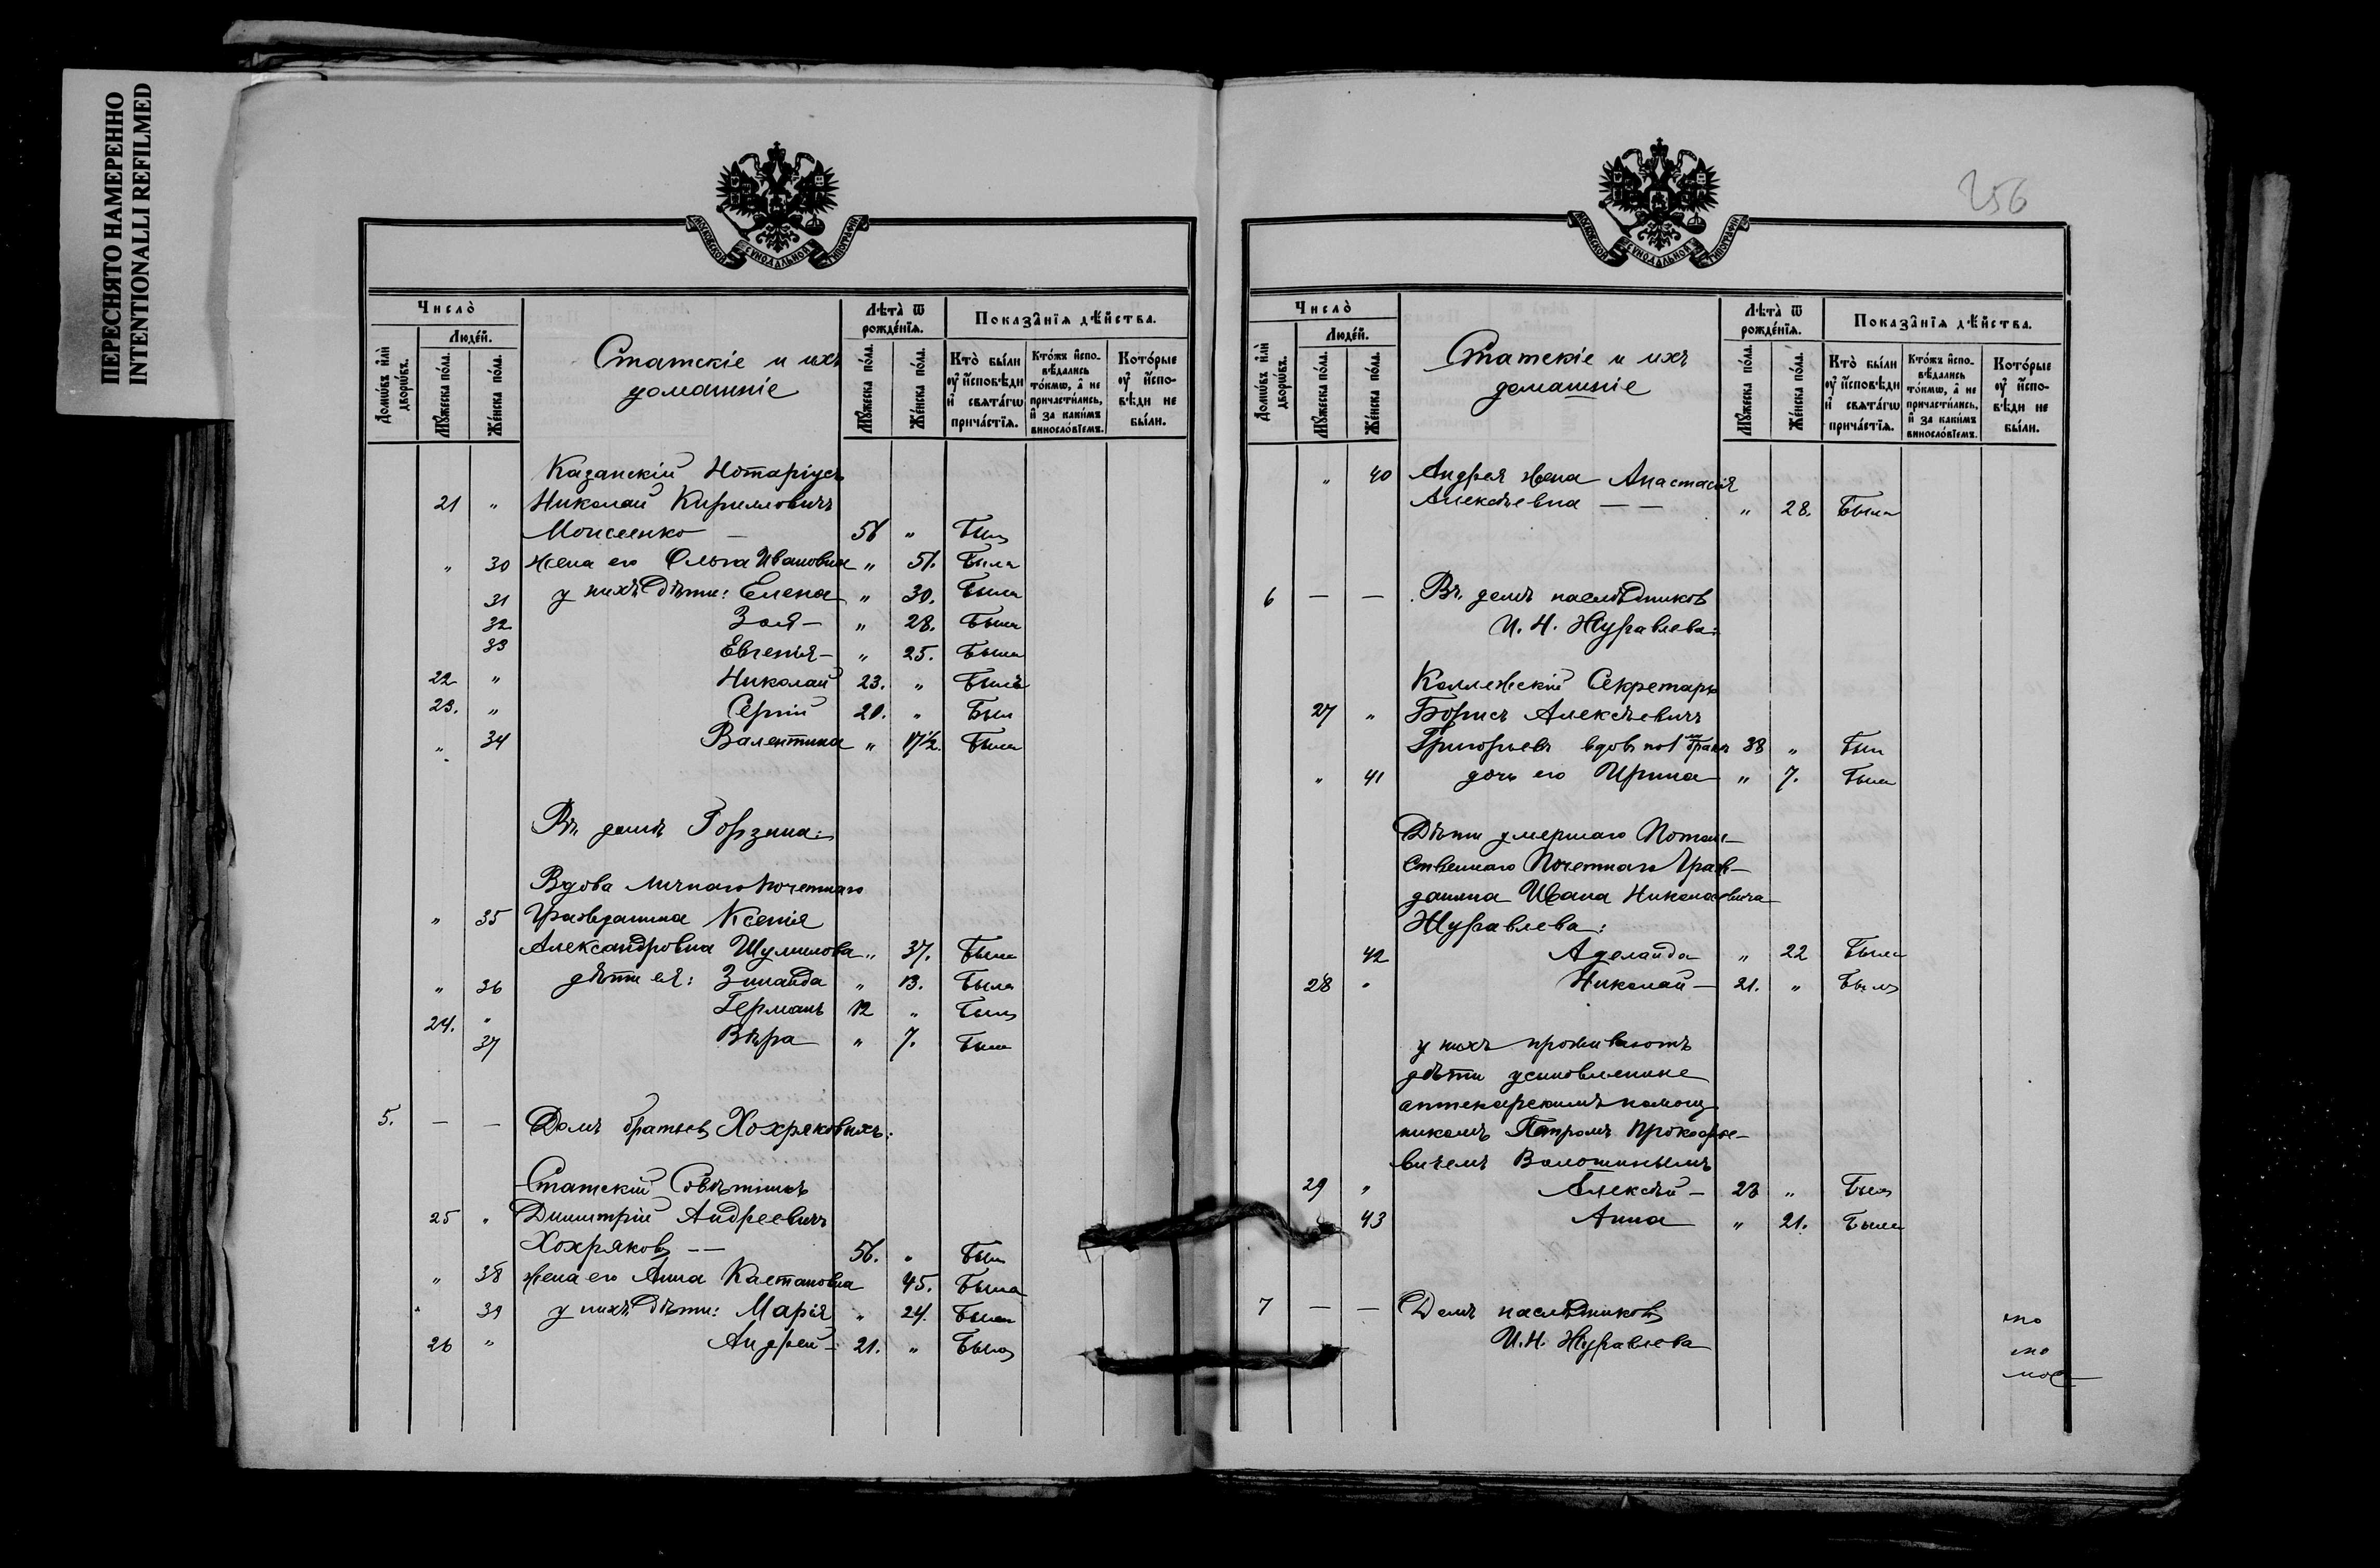 ПЕРЕСНЯТО НАМЕРЕННО
INTENTIONALLI REFILMED
МОСКОВСКОЙ СѴНОДАЛЬНОЙ ТИПОГРАФІИ
Число̀
Лѣта̀ ѿ рожде́нїѧ.
Показа̑нїѧ дѣ́йства.
Домѡ́въ и҆лѝ дворѡ́въ.
Люде́й.
Мꙋ́жеска по́ла.
Же́нска по́ла.
Статскіе и ихъ
домашніе
Мꙋ́жеска по́ла.
Же́нска по́ла.
Кто̀ бы́ли ᲂу҆ и҆́сповѣди и҆ свѧта́гѡ прича́стїѧ.
Кто́жъ и҆спо-вѣ́дались то́кмѡ, а҆ не причасти́лись, и҆ за каки́мъ виносло́вїемъ.
Кото́рые ᲂу҆ и҆́спо-вѣди не бы́ли.
Казанскій Нотаріусъ
21 " Николай Кирилловичъ
Моисеенко — 56 " Былъ
" 30 жена его Ольга Ивановна " 51. Была
31 у нихъ дѣти: Елена " 30. Была
32 Зоя — " 28. Была
33 Евгенія — " 25. Была
22 " Николай 23. " Былъ
23. " Сергій 20. " Былъ
" 34 Валентина " 17½. Была
Въ домѣ
Вдова личнаго почетнаго
" 35 гражданина Ксенія
Александровна Шумилова " 37. Была
" 36 дѣти ея: Зинаида " 13. Была
24. " Германъ 12 " Былъ
37 Вѣра " 7. Была
5. — — Домъ братьевъ Хохряковыхъ:
Статскій Совѣтникъ
25 " Димитрій Андреевичъ
Хохряковъ — — 56. " Былъ
" 38 жена его Анна Каетановна 45. Была
" 39 у нихъ дѣти: Марія " 24. Была
26 " Андрей — 21. " Былъ
256
МОСКОВСКОЙ СѴНОДАЛЬНОЙ ТИПОГРАФІИ
Число̀
Лѣта̀ ѿ рожде́нїѧ.
Показа̑нїѧ дѣ́йства.
Домѡ́въ и҆лѝ дворѡ́въ.
Люде́й.
Мꙋ́жеска по́ла.
Же́нска по́ла.
Статскіе и ихъ
домашніе
Мꙋ́жеска по́ла.
Же́нска по́ла.
Кто̀ бы́ли ᲂу҆ и҆́сповѣди и҆ свѧта́гѡ прича́стїѧ.
Кто́жъ и҆спо-вѣ́дались то́кмѡ, а҆ не причасти́лись, и҆ за каки́мъ виносло́вїемъ.
Кото́рые ᲂу҆ и҆́спо-вѣди не бы́ли.
" 40 Андрея жена Анастасія
Алексѣевна — — " 28. Была
6 — — Въ домѣ наслѣдниковъ
И. Н. Журавлева:
Коллежскій Секретарь
27 " Борисъ Алексѣевичъ
Григорьевъ вдовъ по 1 бракѣ 38 " Былъ
" 41 дочь его Ирина " 7. Была
Дѣти умершаго Потом-
ственнаго Почетнаго Граж-
данина Ивана Николаевича
Журавлева:
42 Аделаида " 22 Была
28 " Николай — 21. " Былъ
у нихъ проживаютъ
дѣти усыновленные
аптекарскимъ помощ-
никомъ Петромъ Прокофье-
вичемъ Волошинымъ
29 " Алексѣй — 23 " Былъ
43 Анна " 21. Была
7 — — Домъ наслѣдниковъ
И. Н. Журавлева